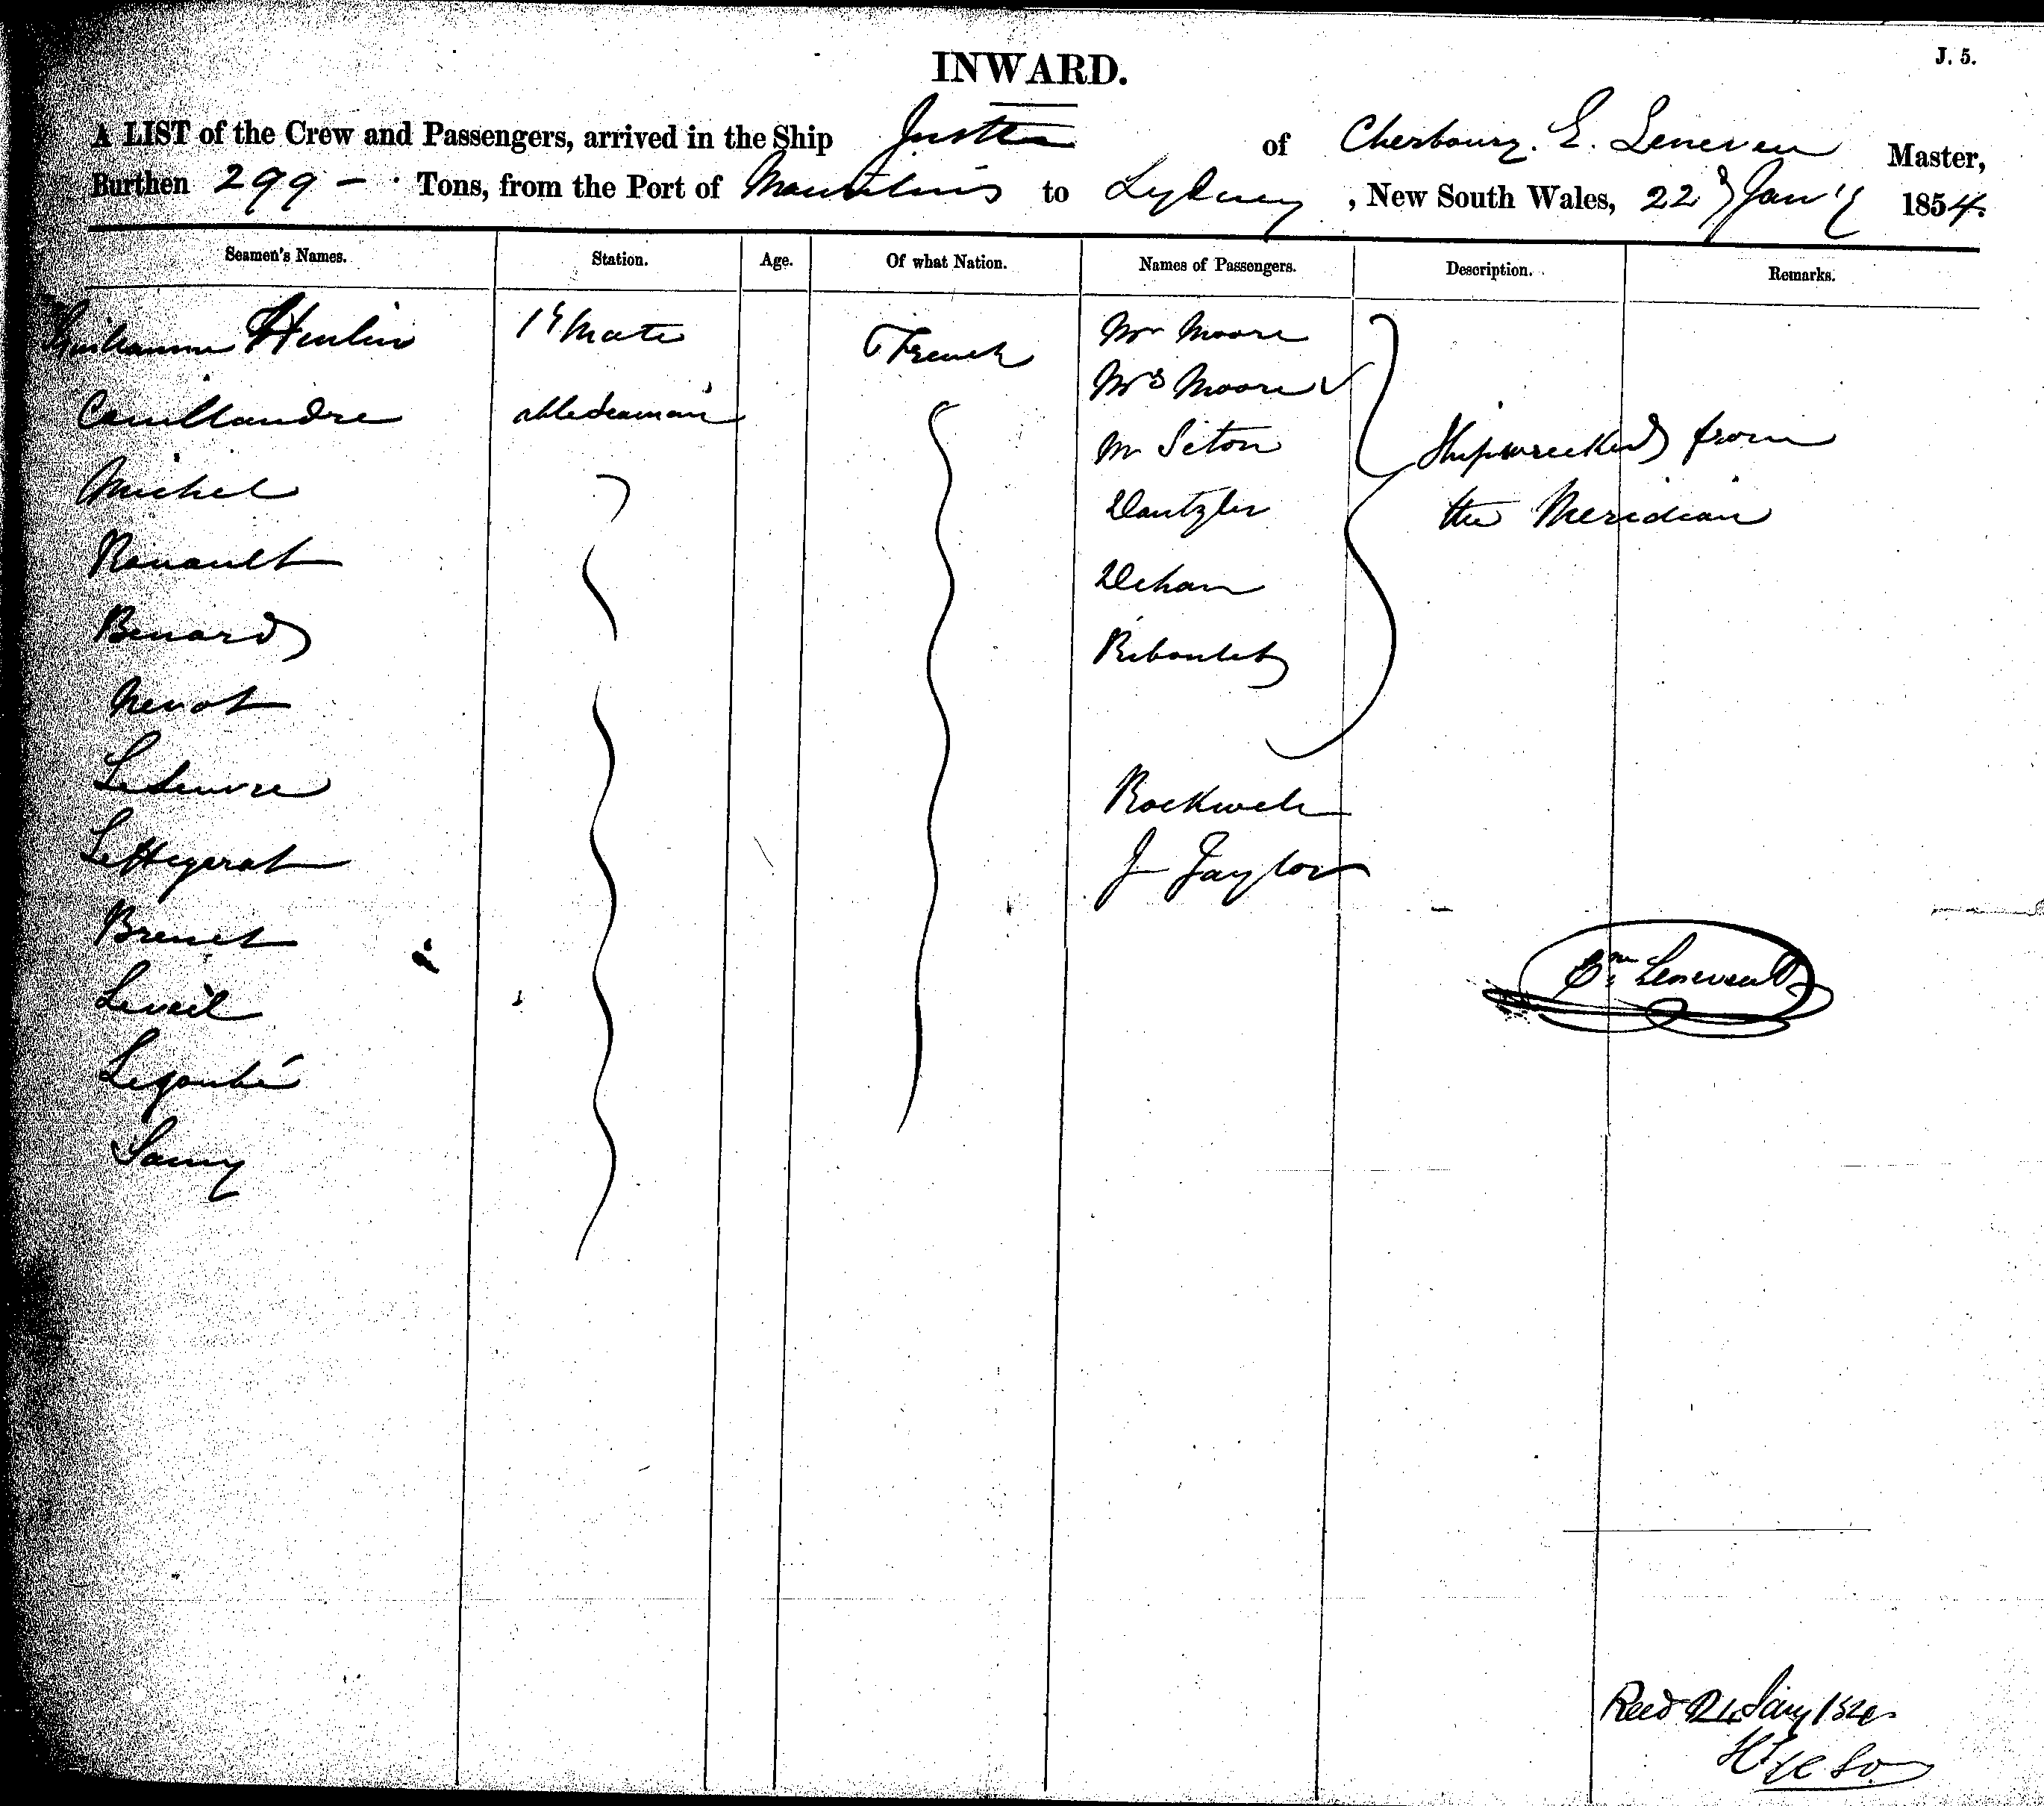 J. 5.
INWARD.
A LIST of the Crew and Passengers, arrived in the Ship of Cherbourg. E. Leneven Master,
Burthen 299 – Tons, from the Port of Mauritius to Sydney, New South Wales, 22d Jany 1854.
Seamen's Names. Station. Age. Of what Nation. Names of Passengers. Description. Remarks.
Guilhaume Heulin 1st Mate French Mr Moore
Mrs Moore
able seaman
Mr Seton Shipwrecked from
Michel Dantzler the Meridian
Renault Dehan
Benard Riboulet
Nevot
Lefeuvre Rockwell
LeHegarat J Taylor
Brenet
Leveil
Leneveu
Lejoubé
Samy
Recd 24 Jany 1854